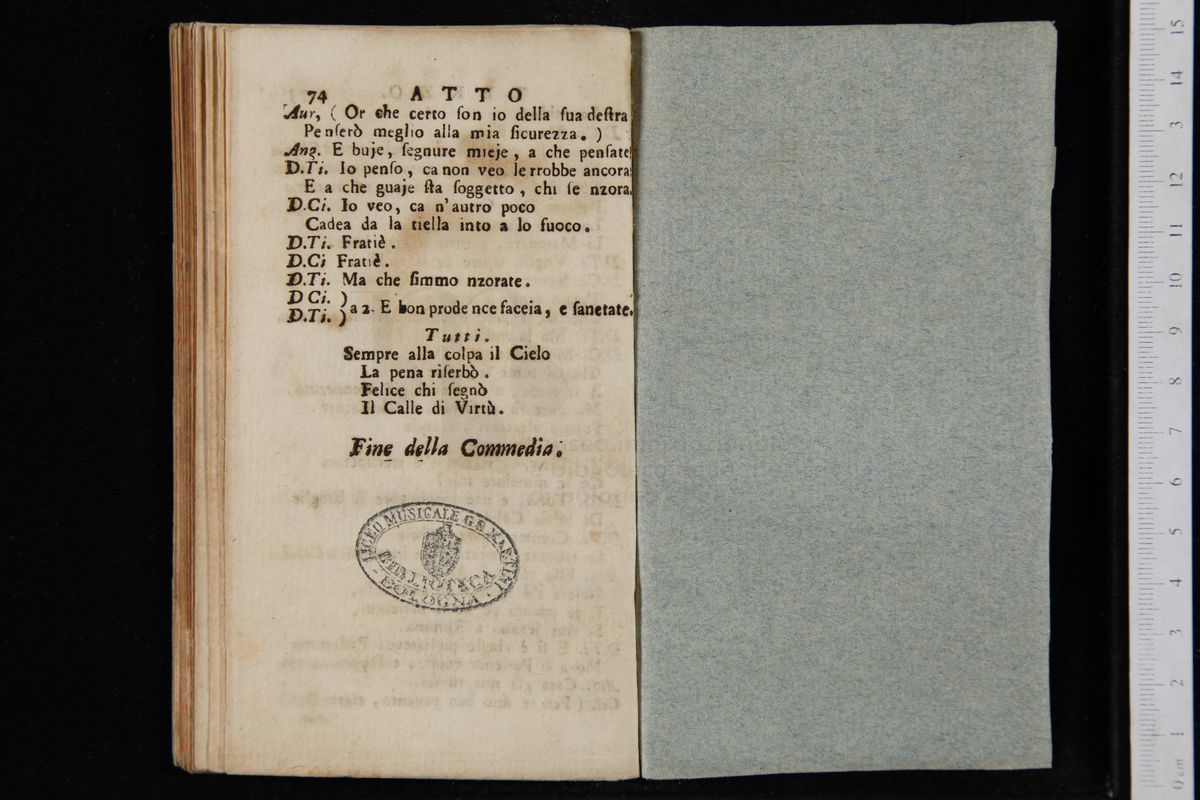 74 ATTO
Aur, ( Or che certo ſon io della ſua deſtra
Penſerò meglio alla mia ſicurezza. )
Ang. E buje, ſegnure mieje, a che penſate
D.Ti. Io penſo, ca non veo le rrobbe ancora
E a che guaje ſta ſoggetto, chi ſe nzora.
D.Ci. Io veo, ca n'autro poco
Cadea da la tiella into a lo fuoco.
D.Ti. Fratiè.
D.Ci Fratiè.
D.Ti. Ma che ſimmo nzorate.
D Ci. )
D.Ti. ) a 2. E bon prode nce faceia, e ſanetate.
Tutti.
Sempre alla colpa il Cielo
La pena riſerbò.
Felice chi ſegnò
Il Calle di Virtù.
Fine della Commedia.
LICEO MUSICALE G.B. MARTINI
BIBLIOTECA
- BOLOGNA -
15
14
3
12
11
10
9
8
7
6
5
4
3
2
1
0 cm